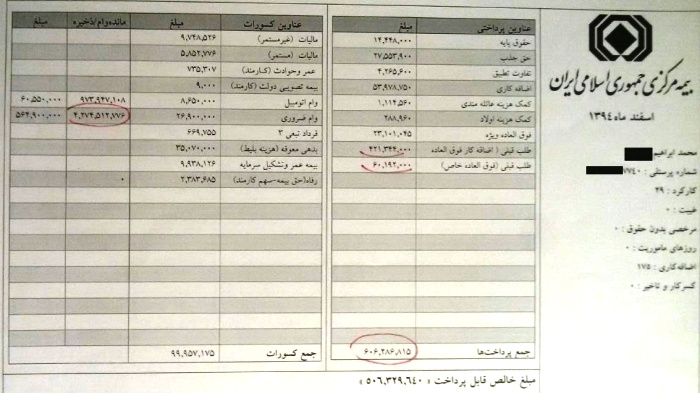 بیمه مرکزی جمهوری اسلامی ایران
اسفند ماه ۱۳۹٤
محمد ابراهیم
شماره پرسنلی : ۷۷٤۰
کارکرد : ۲۹
غیبت : ۰
مرخصی بدون حقوق : ۰
روزهای ماموریت : ۰
اضافه‌کاری : ۱۷۵
کسرکار و تاخیر : ۰
عناوین پرداختی مبلغ
حقوق پایه ۱٤,٤٤۸,۰۰۰
حق جذب ۲۷,۵۵۳,۹۰۰
تفاوت تطبیق ٤,۲۶۵,۶۰۰
اضافه کاری ۵۳,۹۷۸,۷۵۰
کمک هزینه عائله مندی ۱,۱۱٤,۵۶۰
کمک هزینه اولاد ۲۸۸,۹۶۰
فوق العاده ویژه ۲۳,۱۰۱,۰٤۵
طلب قبلی ( اضافه کار فوق العاده ٤۲۱,۳٤٤,۰۰۰
طلب قبلی (فوق العاده خاص) ۶۰,۱۹۲,۰۰۰
جمع پرداخت‌ها ۶۰۶,۲۸۶,۸۱۵
عناوین کسورات مبلغ مانده‌وام/ذخیره مبلغ
مالیات (غیرمستمر) ۹,۷٤۸,۵۲۶
مالیات (مستمر) ۵,۸۵۲,۷۷۶
عمر وحوادث (کارمند) ۷۳۵,۳۰۷
بیمه تصویبی دولت (کارمند) ۹,۰۰۰
وام اتومبیل ۸,۶۵۰,۰۰۰ ۹۷۳,۹٤۷,۱۰۸ ۶۰,۵۵۰,۰۰۰
وام ضروری ۲۶,۹۰۰,۰۰۰ ٤,۲۷٤,۵۱۲,۷۷۶ ۵۶٤,۹۰۰,۰۰۰
قرداد تبعی ۳ ۶۶۹,۷۵۵
بدهی معوقه (هزینه بلیط) ۳۵,۰۷۰,۰۰۰
بیمه عمر وتشکیل سرمایه ۹,۹۳۸,۱۲۶
رفاه(حق بیمه-سهم کارمند) ۲,۳۸۳,۶۸۵ ۰
جمع کسورات ۹۹,۹۵۷,۱۷۵
مبلغ خالص قابل پرداخت « ۵۰۶,۳۲۹,۶٤۰ »